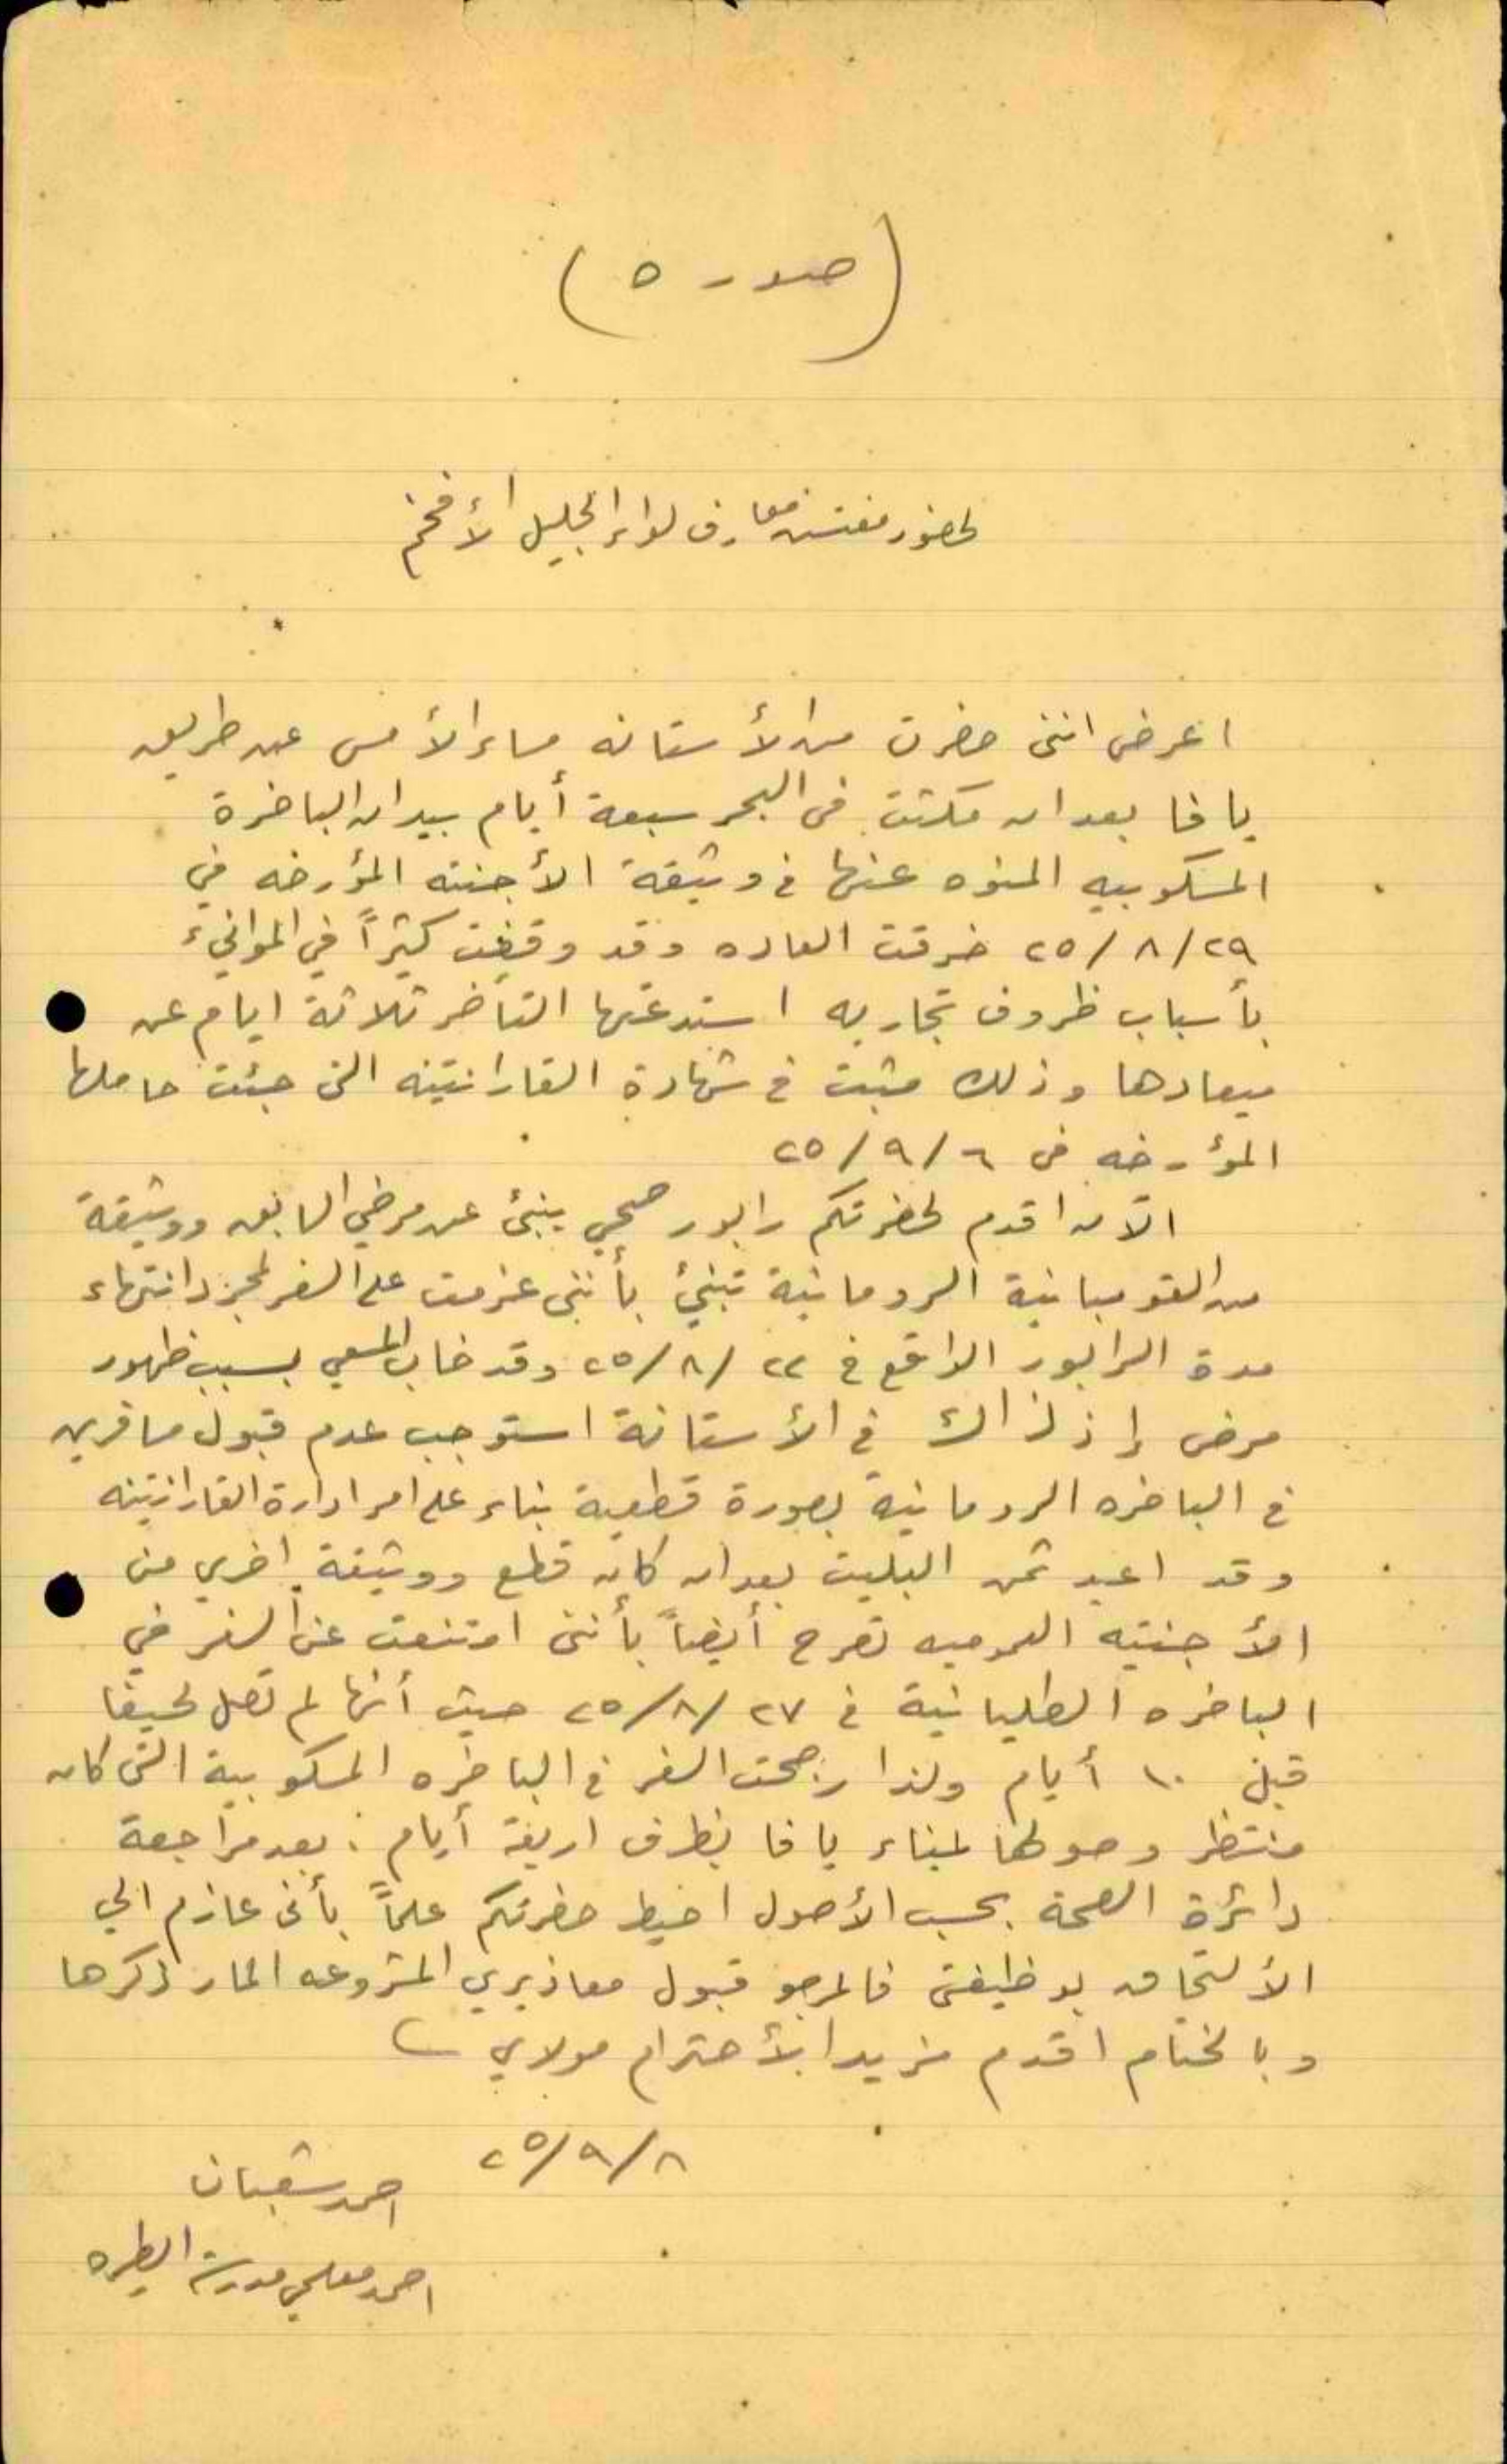 (صوره)
لحضور مفتش معارف لواء الجليل الأفخم
اعرض انني حضرت من الأستانه مساء الأمس عن طريق
يافا بعد ان مكثت في البحر سبعة أيام بيد ان الباخرة
المسكوبيه المنوه عنها في وثيقة الأجنته المؤرخه في
٢٩/٨/٢٥ خرقت العاده وقد وقفت كثيراً في الموانيء
بأسباب ظروف تجاريه استدعتها التأخر ثلاثة ايام عن
ميعادها وذلك مثبت في شهادة القارانتينه التي جئت حاملها
المؤرخه في ٦/٩/٢٥
الآن اقدم لحضرتكم رابور صحي ينبئ عن مرضي السابق ووثيقة
من القومبانية الرومانية تنبئ بأنني عزمت على السفر لمجرد انتهاء
مدة الرابور الواقع في ٢٢/٨/٢٥ وقد خاب المسعي بسبب ظهور
مرض إذ ذاك في الأستانة استوجب عدم قبول مسافرين
في الباخره الرومانية بصورة قطعية بناء على امر ادارة القارانتينه
وقد اعيد ثمن البليت بعد ان كان قطع ووثيقة اخري من
الأجنتيه العموميه تصرح أيضاً بأنني امتنعت عن السفر في
الباخره الطليانية في ٢٧/٨/٢٥ حيث أنها لم تصل لحيفا
قبل ١٠ أيام ولذا رجحت السفر في الباخره المسكوبية التي كان
منتظر وصولها لميناء يافا بظرف اربعة أيام . بعد مراجعة
دائرة الصحة بحسب الأصول احيط حضرتكم علماً بأني عازم الي
الألتحاق بوظيفتي فالمرجو قبول معاذيري المشروعه المار ذكرها
وبالختام اقدم مزيد الأحترام مولاي
٨/٩/٢٥
احمد شعبان
احمد معلمي مدرسة الطيره